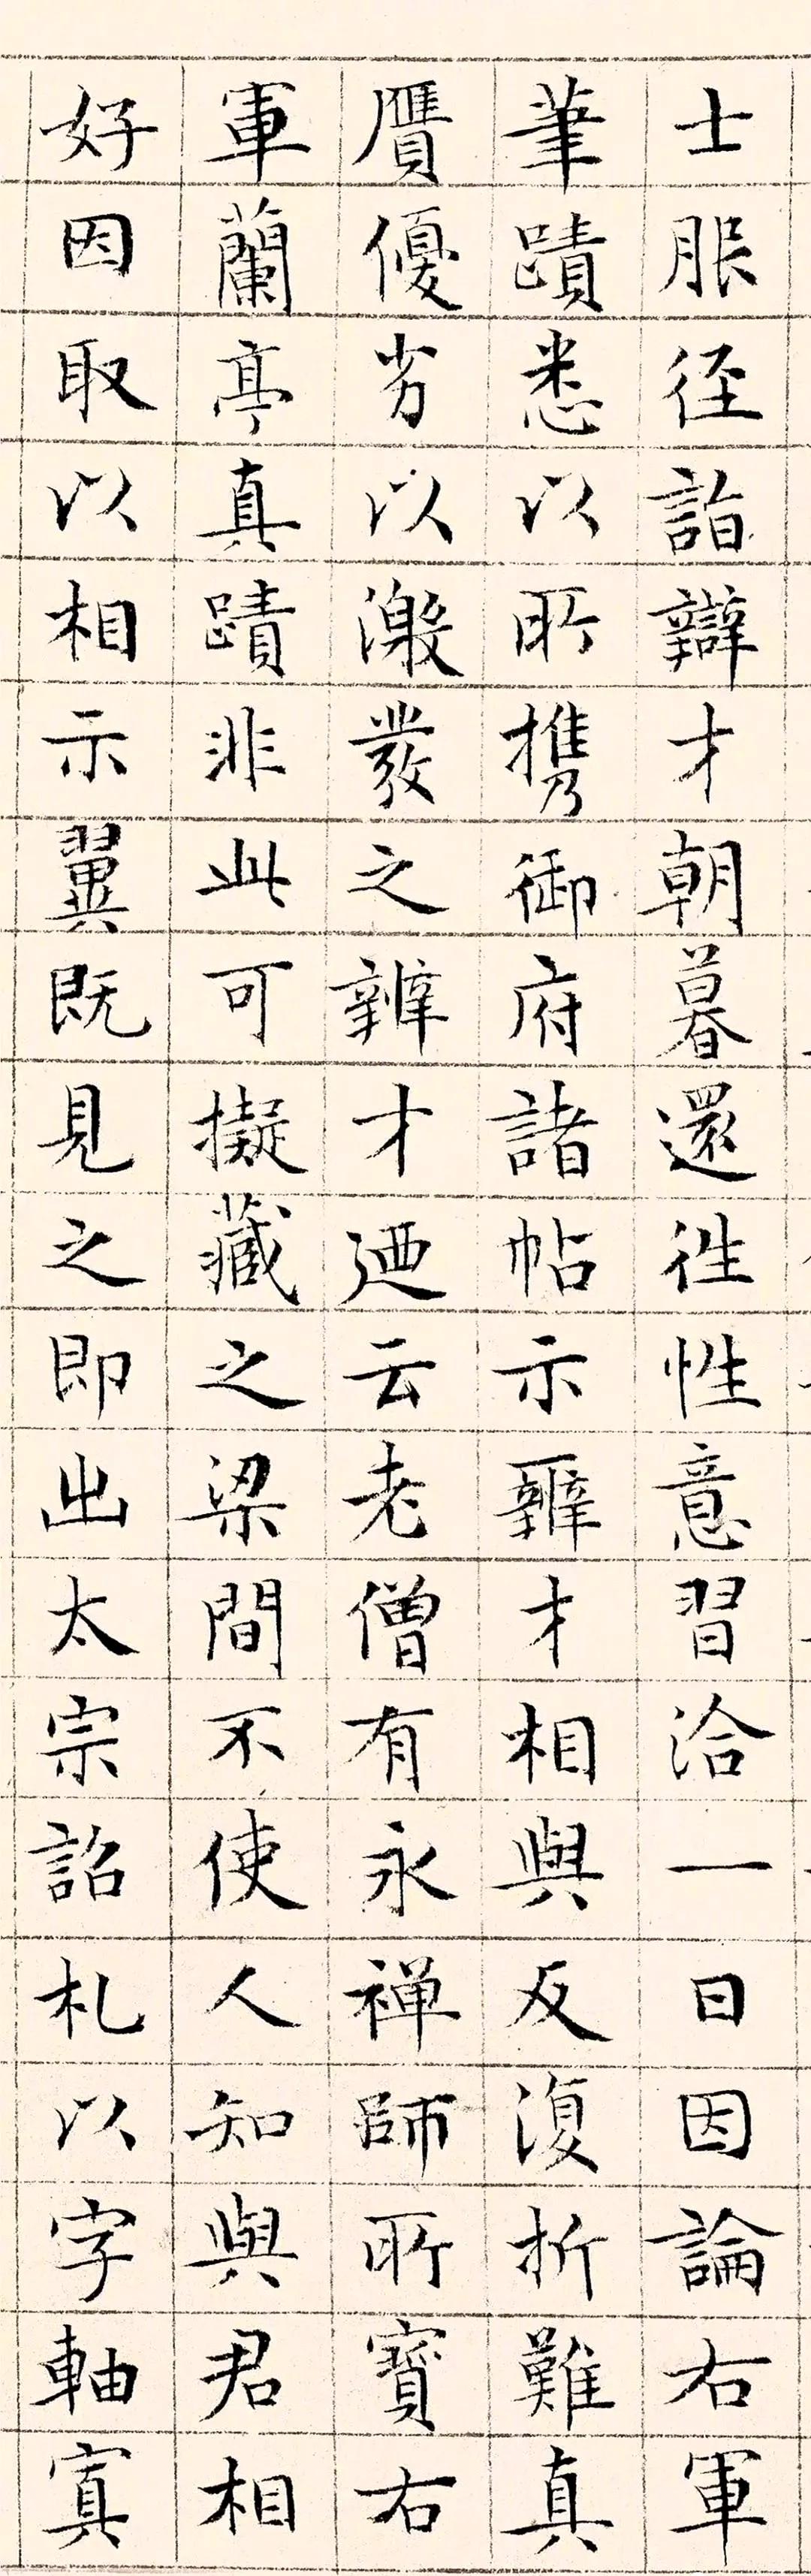 士服径詣辯才朝暮還徃性意習洽一日因論右軍
筆蹟悉以所攜御府諸帖示辨才相與反復折難真
贗優劣以激發之辨才迺云老僧有永禅師所寶右
軍蘭亭真蹟非此可擬藏之梁間不使人知與君相
好因取以相示翼既見之即出太宗詔札以字軸寘